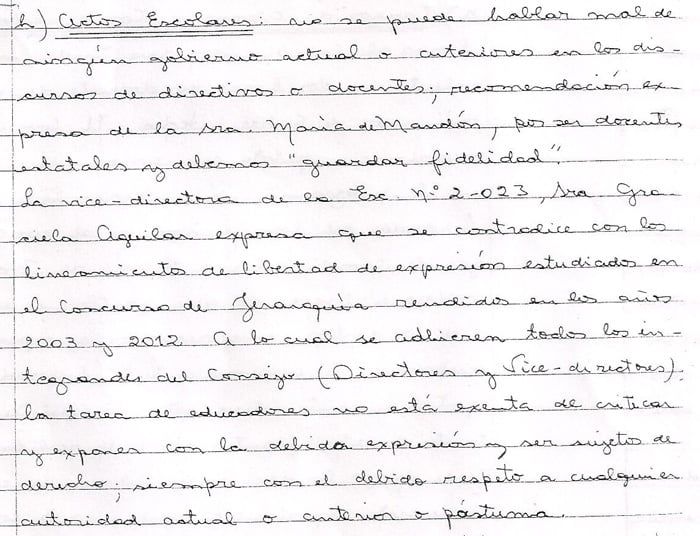 h) Actos Escolares: no se puede hablar mal de
ningún gobierno actual o anteriores en los dis-
cursos de directivos o docentes; recomendación ex-
presa de la sra. Maria de Mandón, por ser docentes
estatales y debemos "guardar fidelidad".
La vice-directora de la Esc. Nº 2-023, Sra Gra-
ciela Aguilar expresa que se contradice con los
lineamientos de libertad de expresión estudiados en
el Concurso de Jerarquía rendidos en los años
2003 y 2012. A lo cual se adhieren todos los in-
tegrandes del Consejo (Directores y Vice-directores).
la tarea de educadores no está exenta de criticar
y exponer con la debida expresión y ser sujetos de
derecho; siempre con el debido respeto a cualquier
autoridad actual o anterior o póstuma.